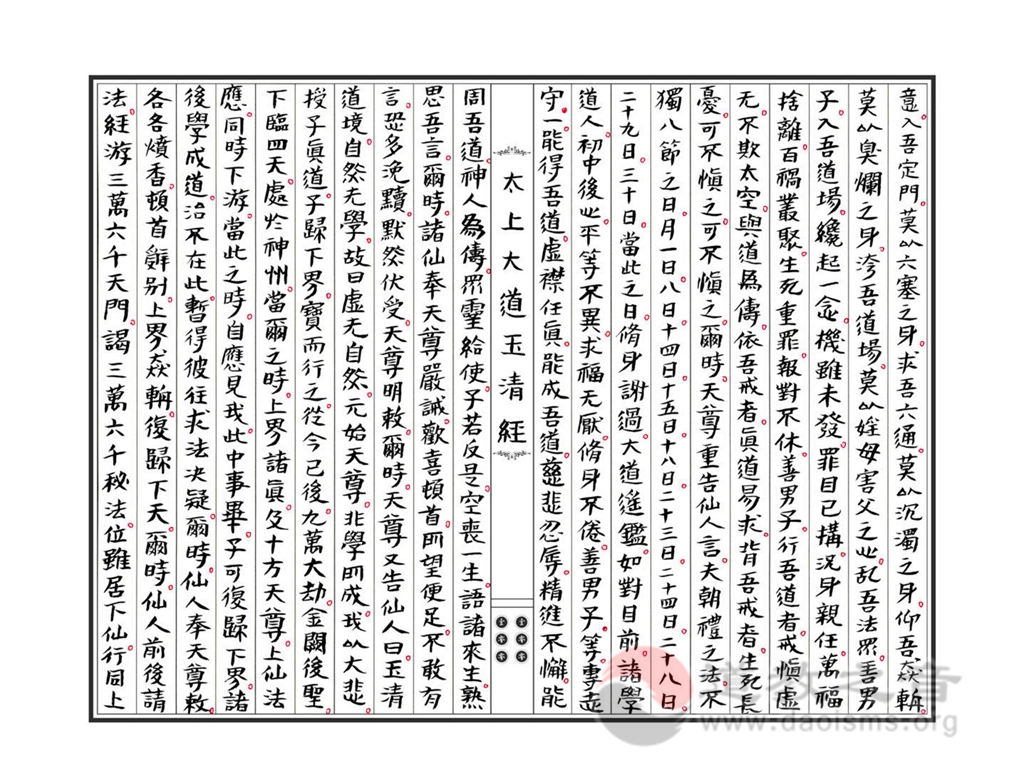 意入吾定門莫以六塞之身求吾六通莫以沉濁之身仰吾飛軿
莫以臭爛之身洿吾道場莫以婬母害父之心乱吾法眾善男
子入吾道場纔起一念機雖未發罪目已搆況身親任萬福
捨離百禍叢聚生死重罪報對不休善男子行吾道者戒慎虛
无不欺太空與道為儔依吾戒者真道易求背吾戒者生死長
憂可不慎之可不慎之爾時天尊重告仙人言夫朝禮之法不
獨八節之日月一日八日十四日十五日十八日二十三日二十四日二十八日
二十九日三十日當此之日脩身謝過大道遙鑑如對目前諸學
道人初中後心平等不異求福无厭脩身不倦善男子等事
守一能得吾道虛襟任真能成吾道慈悲忍辱精進不懈能
太上大道玉清經
周吾道神人為傳眾靈給使子若反是空喪一生語諸來生熟
思吾言爾時諸仙奉天尊嚴誡歡喜頓首所望便足不敢有
言恐多浼黷默然伏受天尊明敕爾時天尊又告仙人曰玉清
道境自然无學故曰虛无自然元始天尊非學所成我以大悲
授子真道子歸下界寶而行之從今已後九萬大劫金闕後聖
下臨四天處於神州當爾之時上界諸真及十方天尊上仙法
應同時下游當此之時自應見我此中事畢子可復歸下界諸
後學成道洽不在此暫得彼往求法決疑爾時仙人奉天尊敕
各各燌香頓首辭别上界飛軿復歸下天爾時仙人前後請
法經游三萬六千天門謁三萬六千秘法位雖居下仙行同上
道教之音
www.daoisms.org